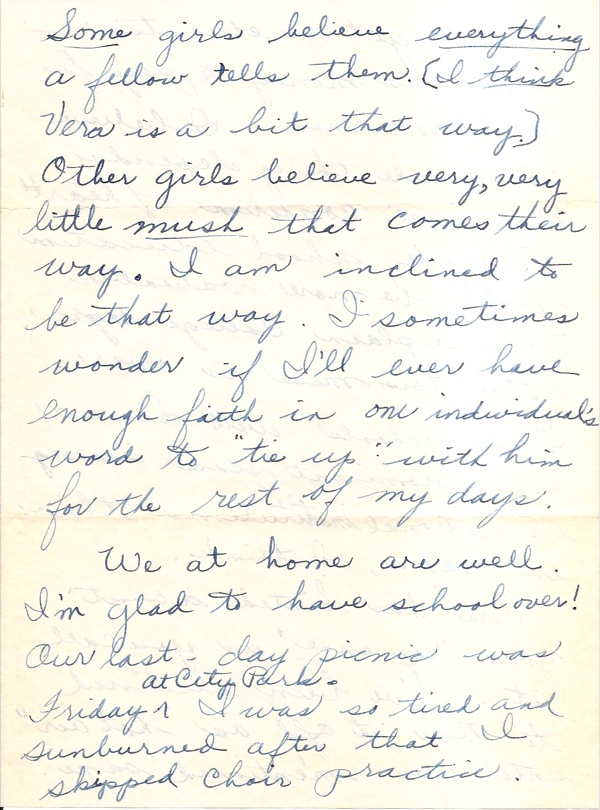 Some girls believe everything
a fellow tells them. (I think
Vera is a bit that way.)
Other girls believe very, very
little mush that comes their
way. I am inclined to
be that way. I sometimes
wonder if I'll ever have
enough faith in one individual's
word to "tie up" with him
for the rest of my days.
We at home are well.
I'm glad to have school over!
Our last-day picnic was
at City Park.
Friday ^ I was so tired and
sunburned after that I
skipped choir practice.